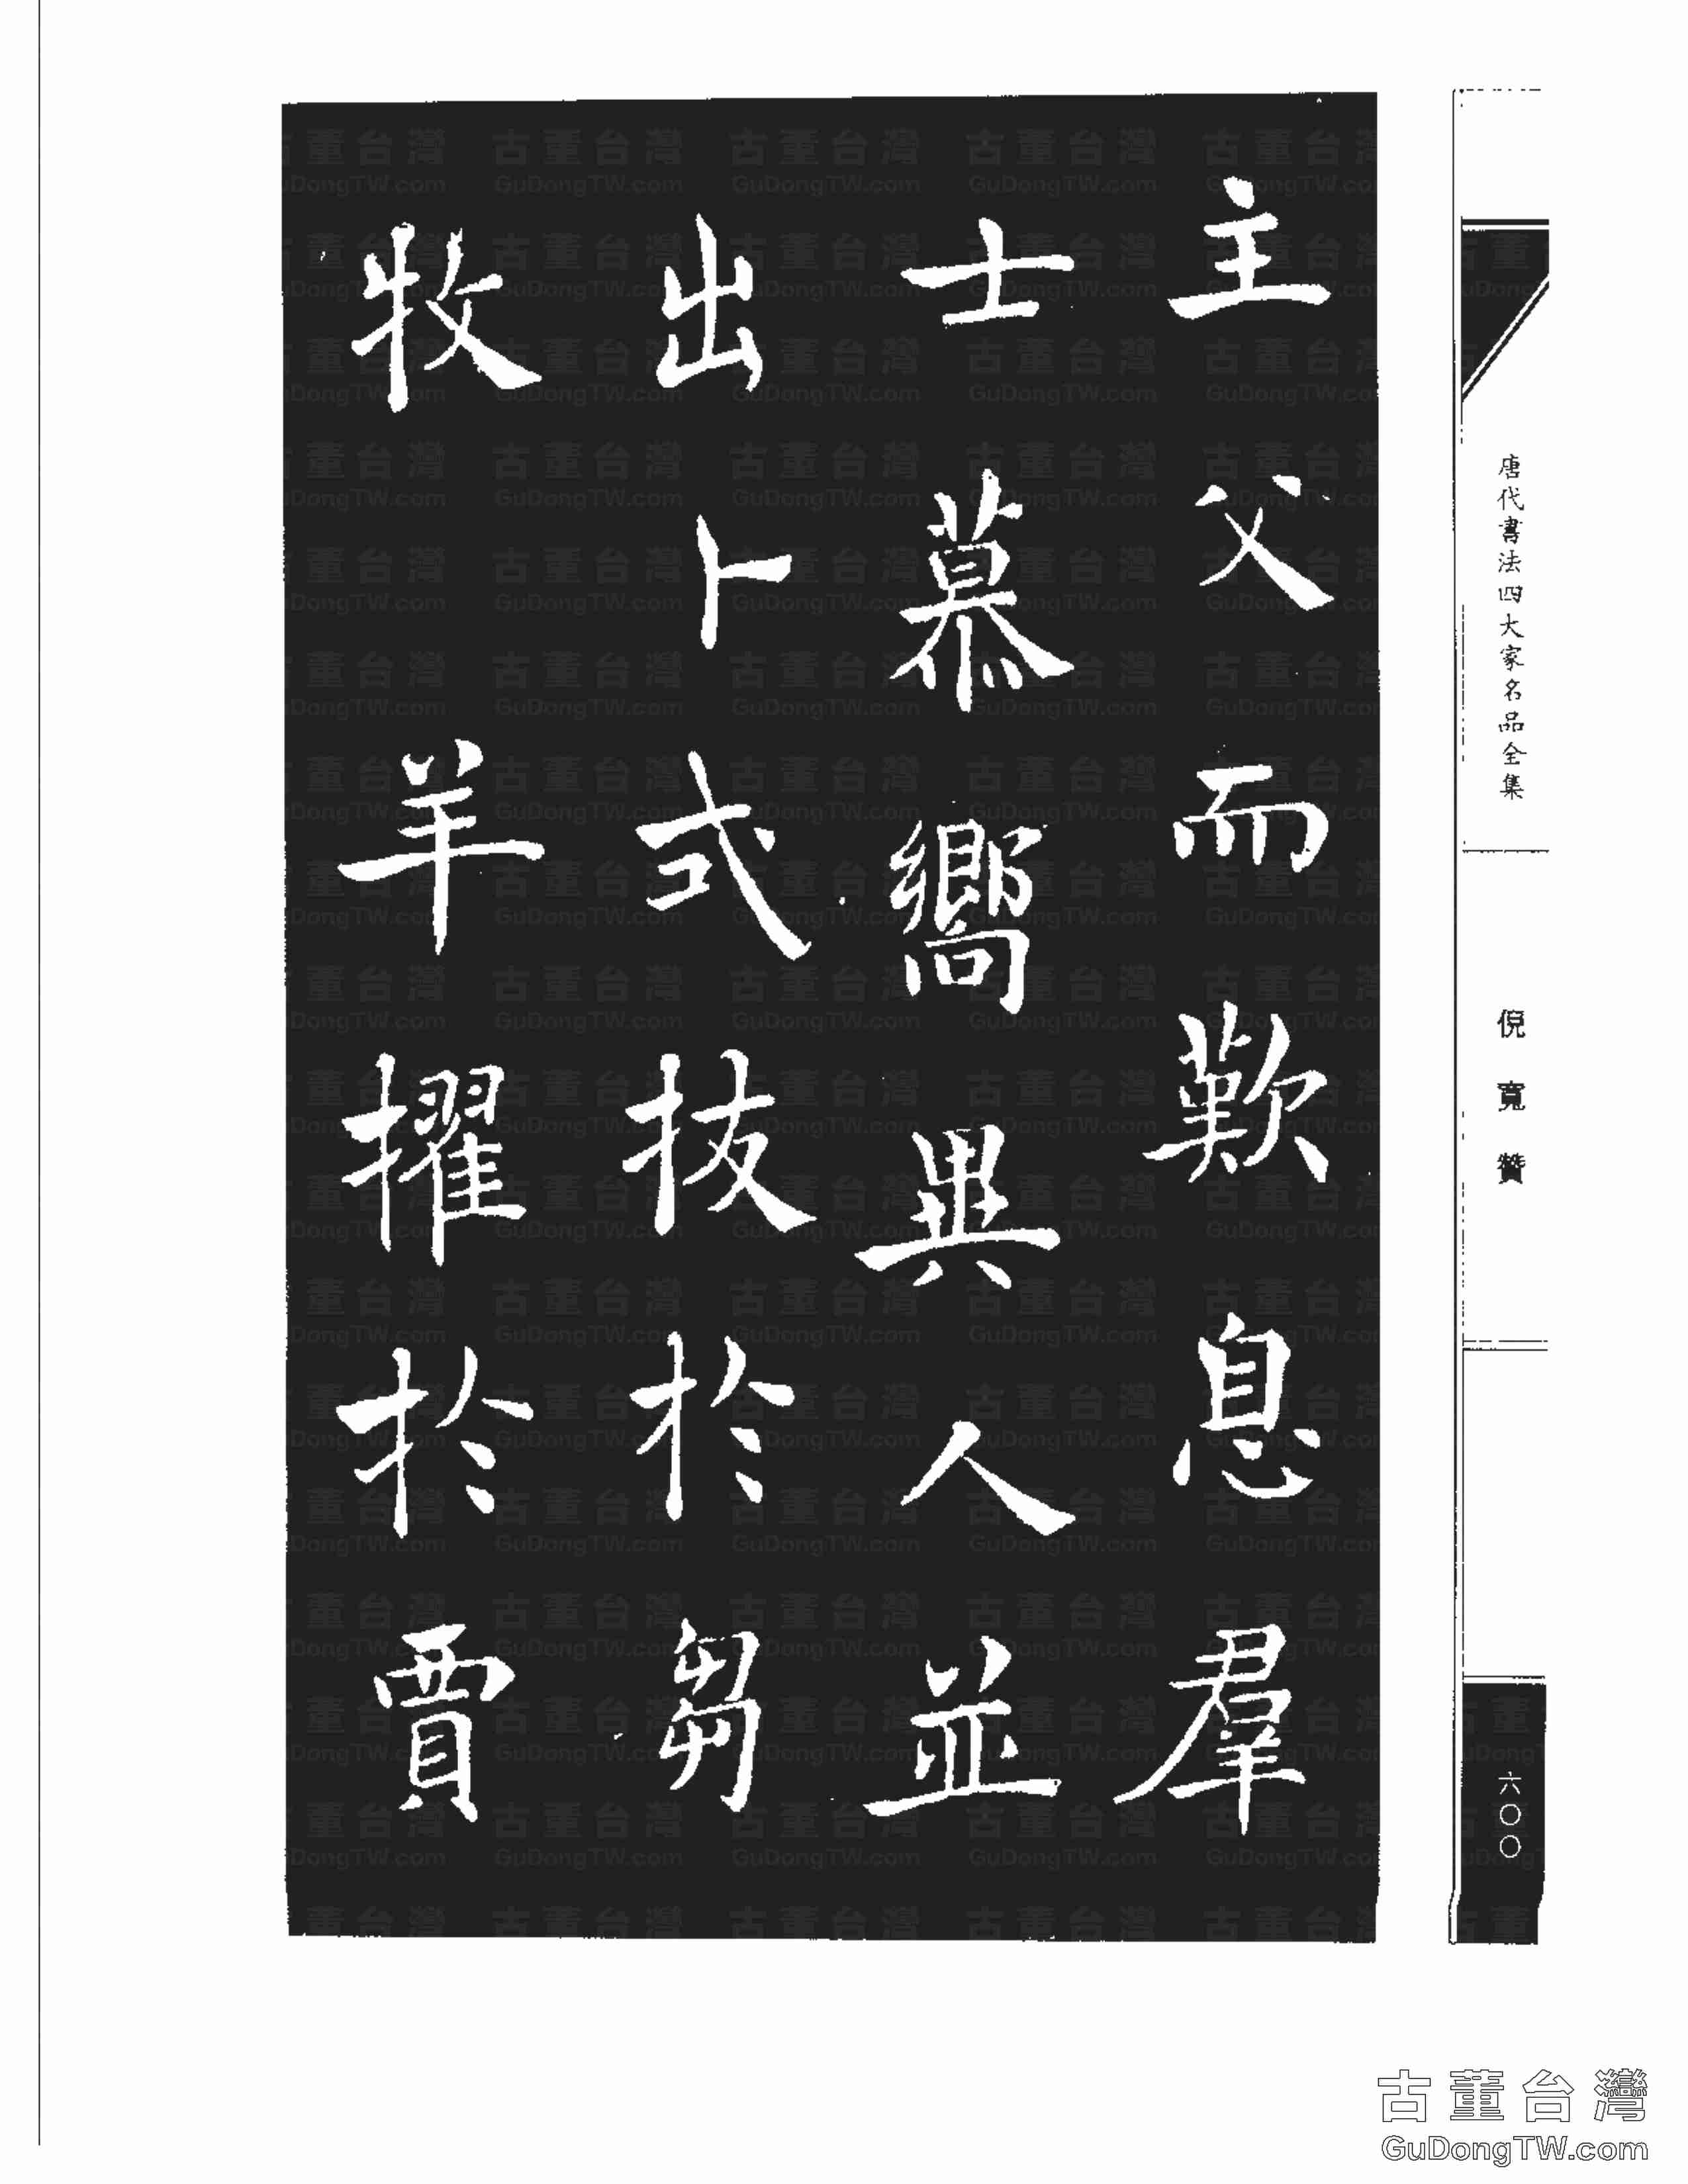 主父而歎息羣
士慕嚮異人並
出卜式拔於芻
牧羊擢於賈
唐代書法四大家名品全集
倪寬贊
六〇〇
古董台灣
GuDongTW.com